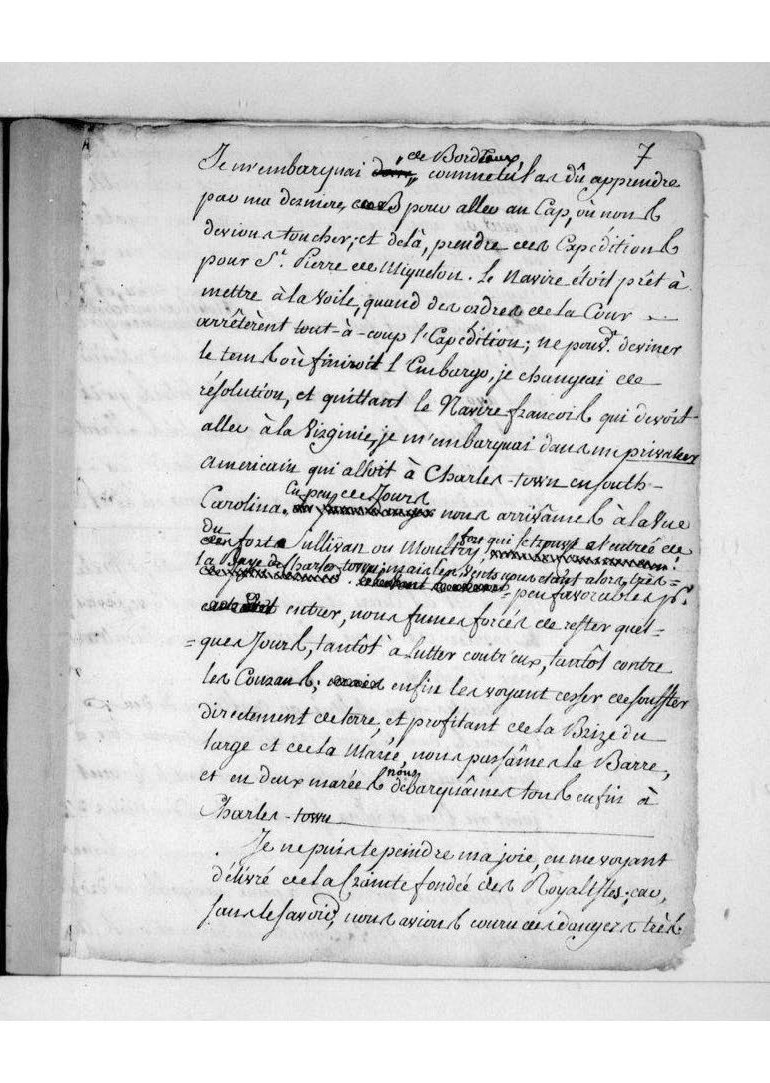 7
Je m'embarquai de Bordeaux, comme tu l'as dû apprendre
par ma derniere, pour aller au Cap, où nous
devions toucher; et delà, prendre des Expéditions
pour St. Pierre de Miquelon. Le Navire étoit prêt à
mettre à la voile, quand des ordres de la Cour
arrêtèrent tout-à-coup l'Expédition; ne pouvt. deviner
le tems où finiroit l'Embargo, je changeai de
résolution, et quittant le Navire françois qui devoit
aller à la Virginie, je m'embarquai dans un privateer
américain qui alloit à Charles-town en south-
Carolina. En peu de Jours nous arrivâmes à la vue
du fort Sullivan ou Moultry, fort qui se trouve à l'entrée de
la Baye de Charles-town; mais les vents nous étant alors très-
peu favorables pr.
entrer, nous fumes forcés de rester quel-
=ques Jours, tantôt à lutter contr'eux, tantôt contre
les Courans; enfin les voyant cesser de souffler
directement de terre, et profitant de la Brize du
large et de la Marée, nous passâmes la Barre,
et en deux marées nous débarquâmes tous enfin à
Charles-town
Je ne puis te peindre ma joie, en me voyant
délivré de la Crainte fondée des Royalistes; car,
sans le savoir, nous avions couru des dangers très